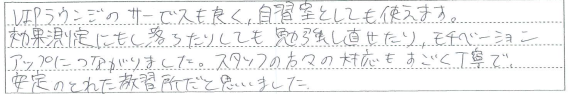 VIPラウンジのサービスも良く,自習室としても使えます。
効果測定にもし落ちたりしても勉強し直せたり,モチベーション
アップにつながりました。スタッフの方々の対応もすごく丁寧で,
安定のとれた教習所だと思いました。